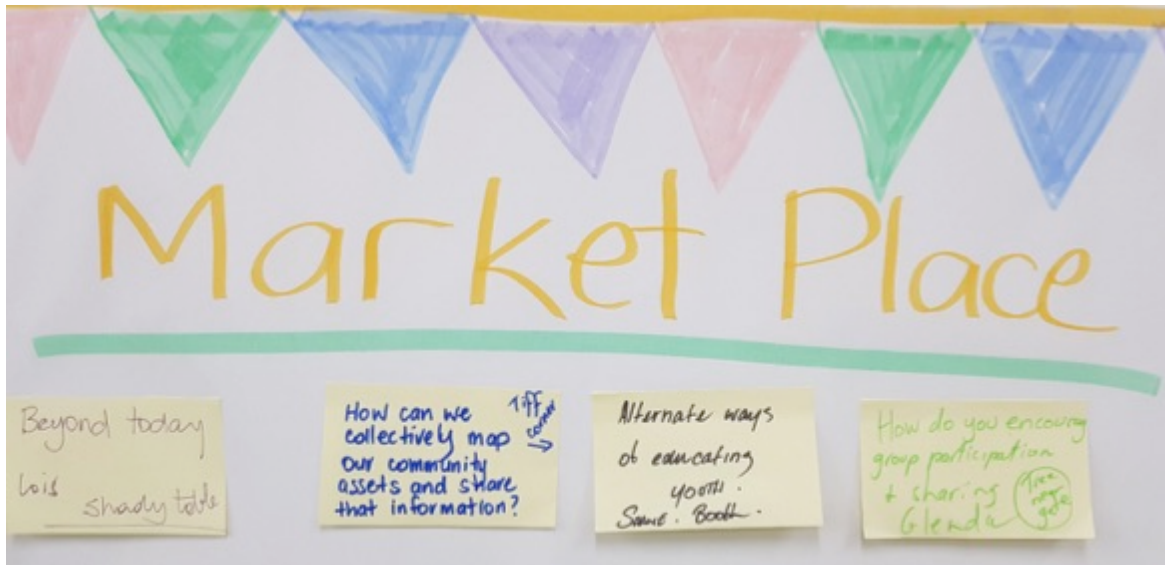 Market Place
Beyond today
Lois
shady table
How can we
collectively map
our community
assets and share
that information?
Tiff
corner
Alternate ways
of educating
youth.
Booth.
How do you encourg
group participation
+ sharing
Glenda
Tree
near
gate